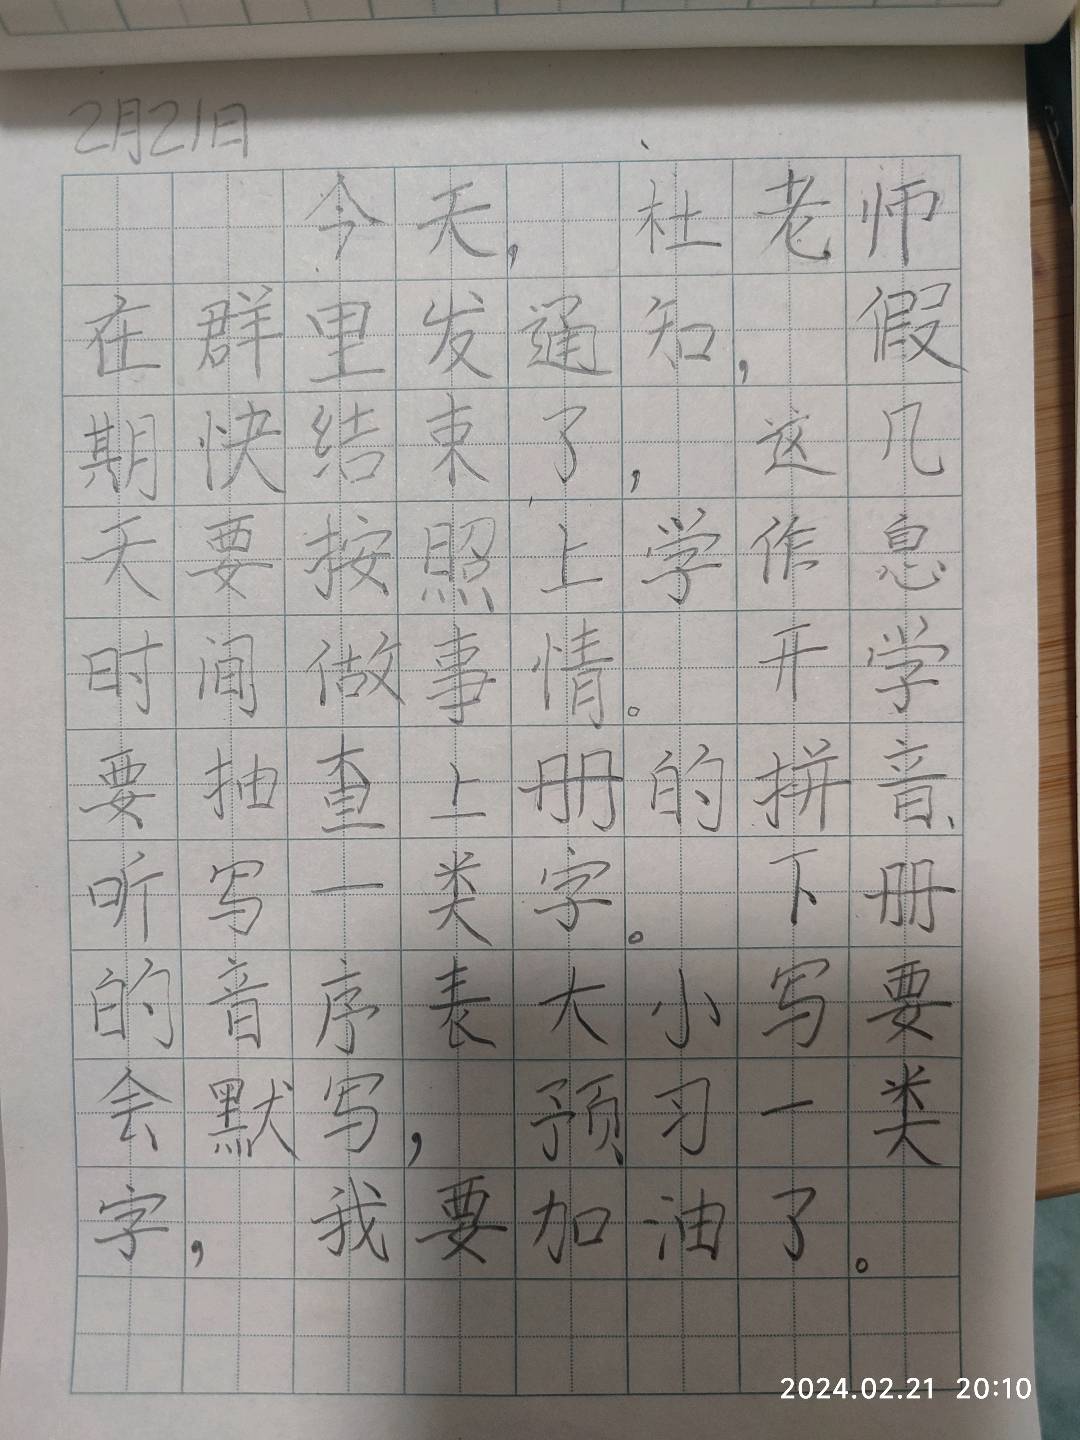 2月21日
今天,杜老师
在群里发通知,假
期快结束了,这几
天要按照上学作息
时间做事情。开学
要抽查上册的拼音、
听写一类字。下册
的音序表大小写要
会默写,预习一类
字,我要加油了。
2024.02.21 20:10